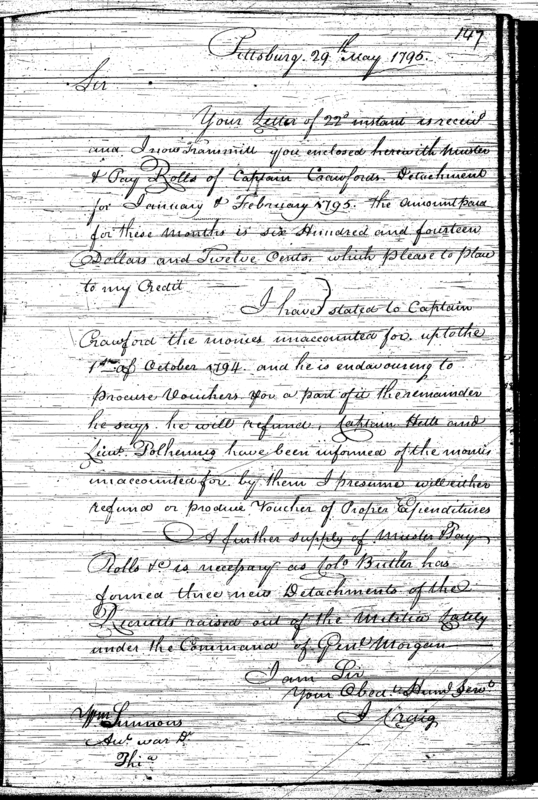 147
Pittsburg. 29th May 1795.
Sir
Your Letter of 22d instant is receivd
and I now Transmitt you enclosed herewith Muster
& Pay Rolls of Captain Crawfords Detachment
for January & February 1795. the amount paid
for these months is six Hundred and fourteen
Dollars and Twelve Cents. which please to place
to my Credit
I have stated to Captain
Crawford the monies unaccounted for. up to the
1st of October 1794. and he is endavouring to
procure Vouchers for a part of it the remainder
he says. he will refund, Captain Heth and
Lieut. Polhemus have been informed of the monies
unaccounted for by them I presume will either
refund or produce Voucher of Proper Expenditures
A further supply of Muster & Pay
Rolls &c is necessary as Colo Butler has
formed three new Detachments of the
Recruits raised out of the Militia Lately
under the Command of Genl Morgan
I am Sir
Your Obedt Huml Servt
I Craig
Wm Simmons
Act. War Dt
Phia